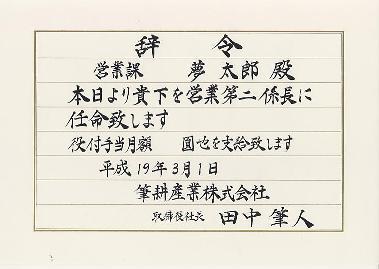 辞令
営業課 夢太郎殿
本日より貴下を営業第二係長に
任命致します
役付手当月額 圓也を支給致します
平成19年3月1日
筆耕産業株式会社
取締役社長 田中筆人